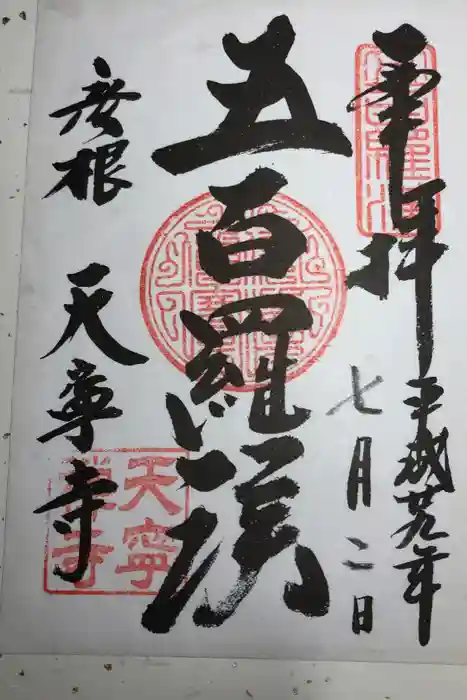 奉拝 平成廿九年
七月二日
五百羅漢
彦根 天寧寺
天寧
禅寺